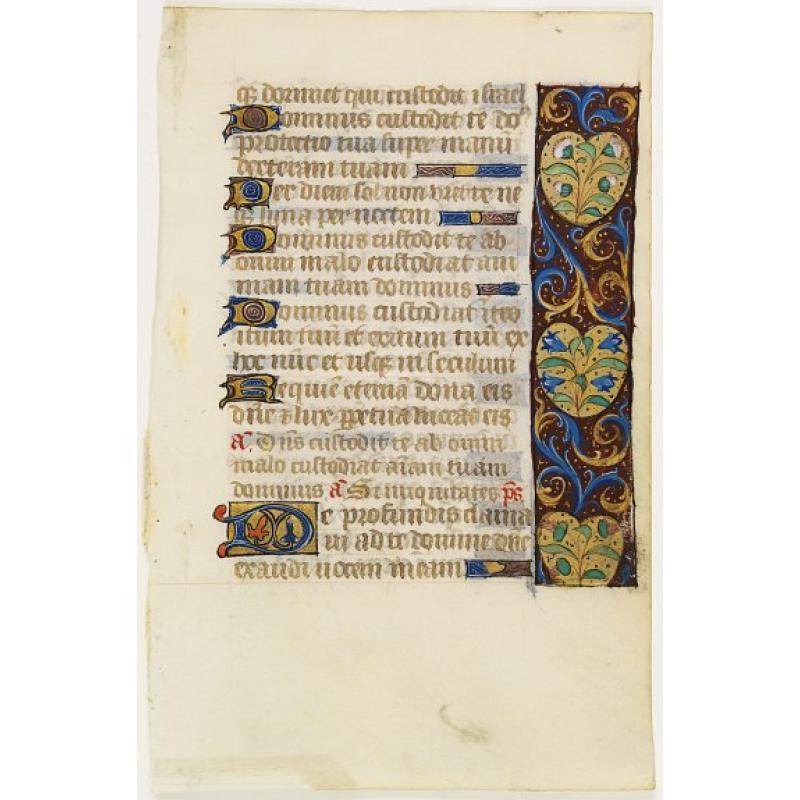 q3 dormiet qui custodit israel
Dominus custodit te do
protectio tua super manū
dexteram tuam
Per diem sol non vret te ne
q3 luna per noctem
Dominus custodit te ab
omni malo custodiat ani
mam tuam dominus
Dominus custodiat ītro
itum tuū et exitum tuū ex
hoc nūc et usq3 in seculum
Requiē eternā dona eis
dn̄e & lux ꝑpetua luceas eis
a. Dn̄s custodit te ab omni
malo custodiat aīam tuam
dominus a Si iniquitates p̄s
De profundis clama
ui ad te domine dn̄e
exaudi uocem meam